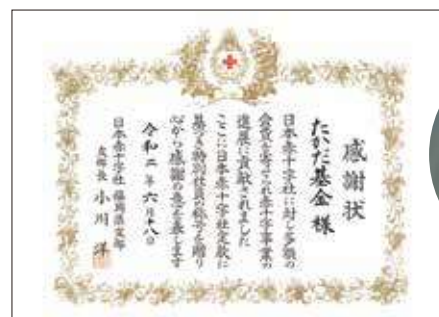 感謝状
たかだ基金 様
日本赤十字社に対し多額の
金資を寄せられ赤十字事業の
進展に貢献されました
ここに日本赤十字社定款に
基づき特別社員の称号を贈り
心から感謝の意を表します
令和二年六月十八日
日本赤十字社 福岡県支部
支部長 小川 洋